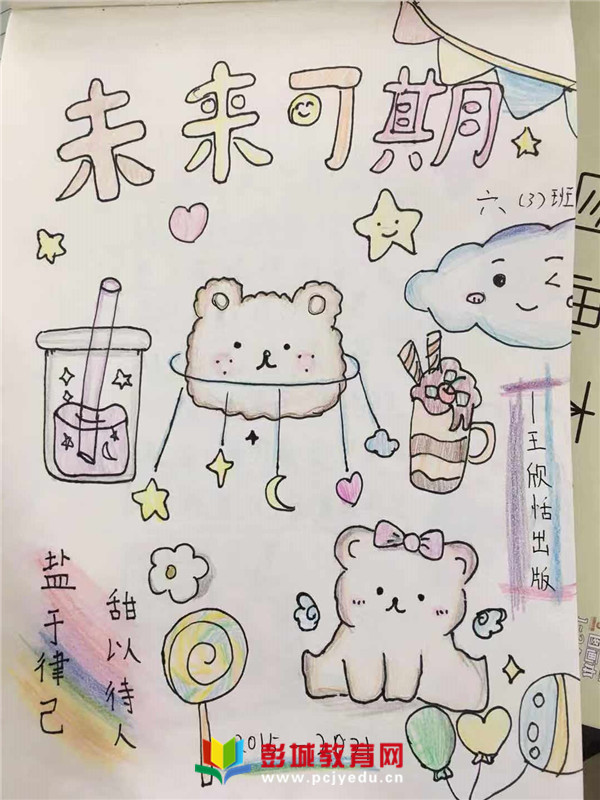 未来可期
六、(3)班
一王欣恬出版
盐于律己
甜以待人
2015 2021
彭城教育网
www.pcjyedu.cn